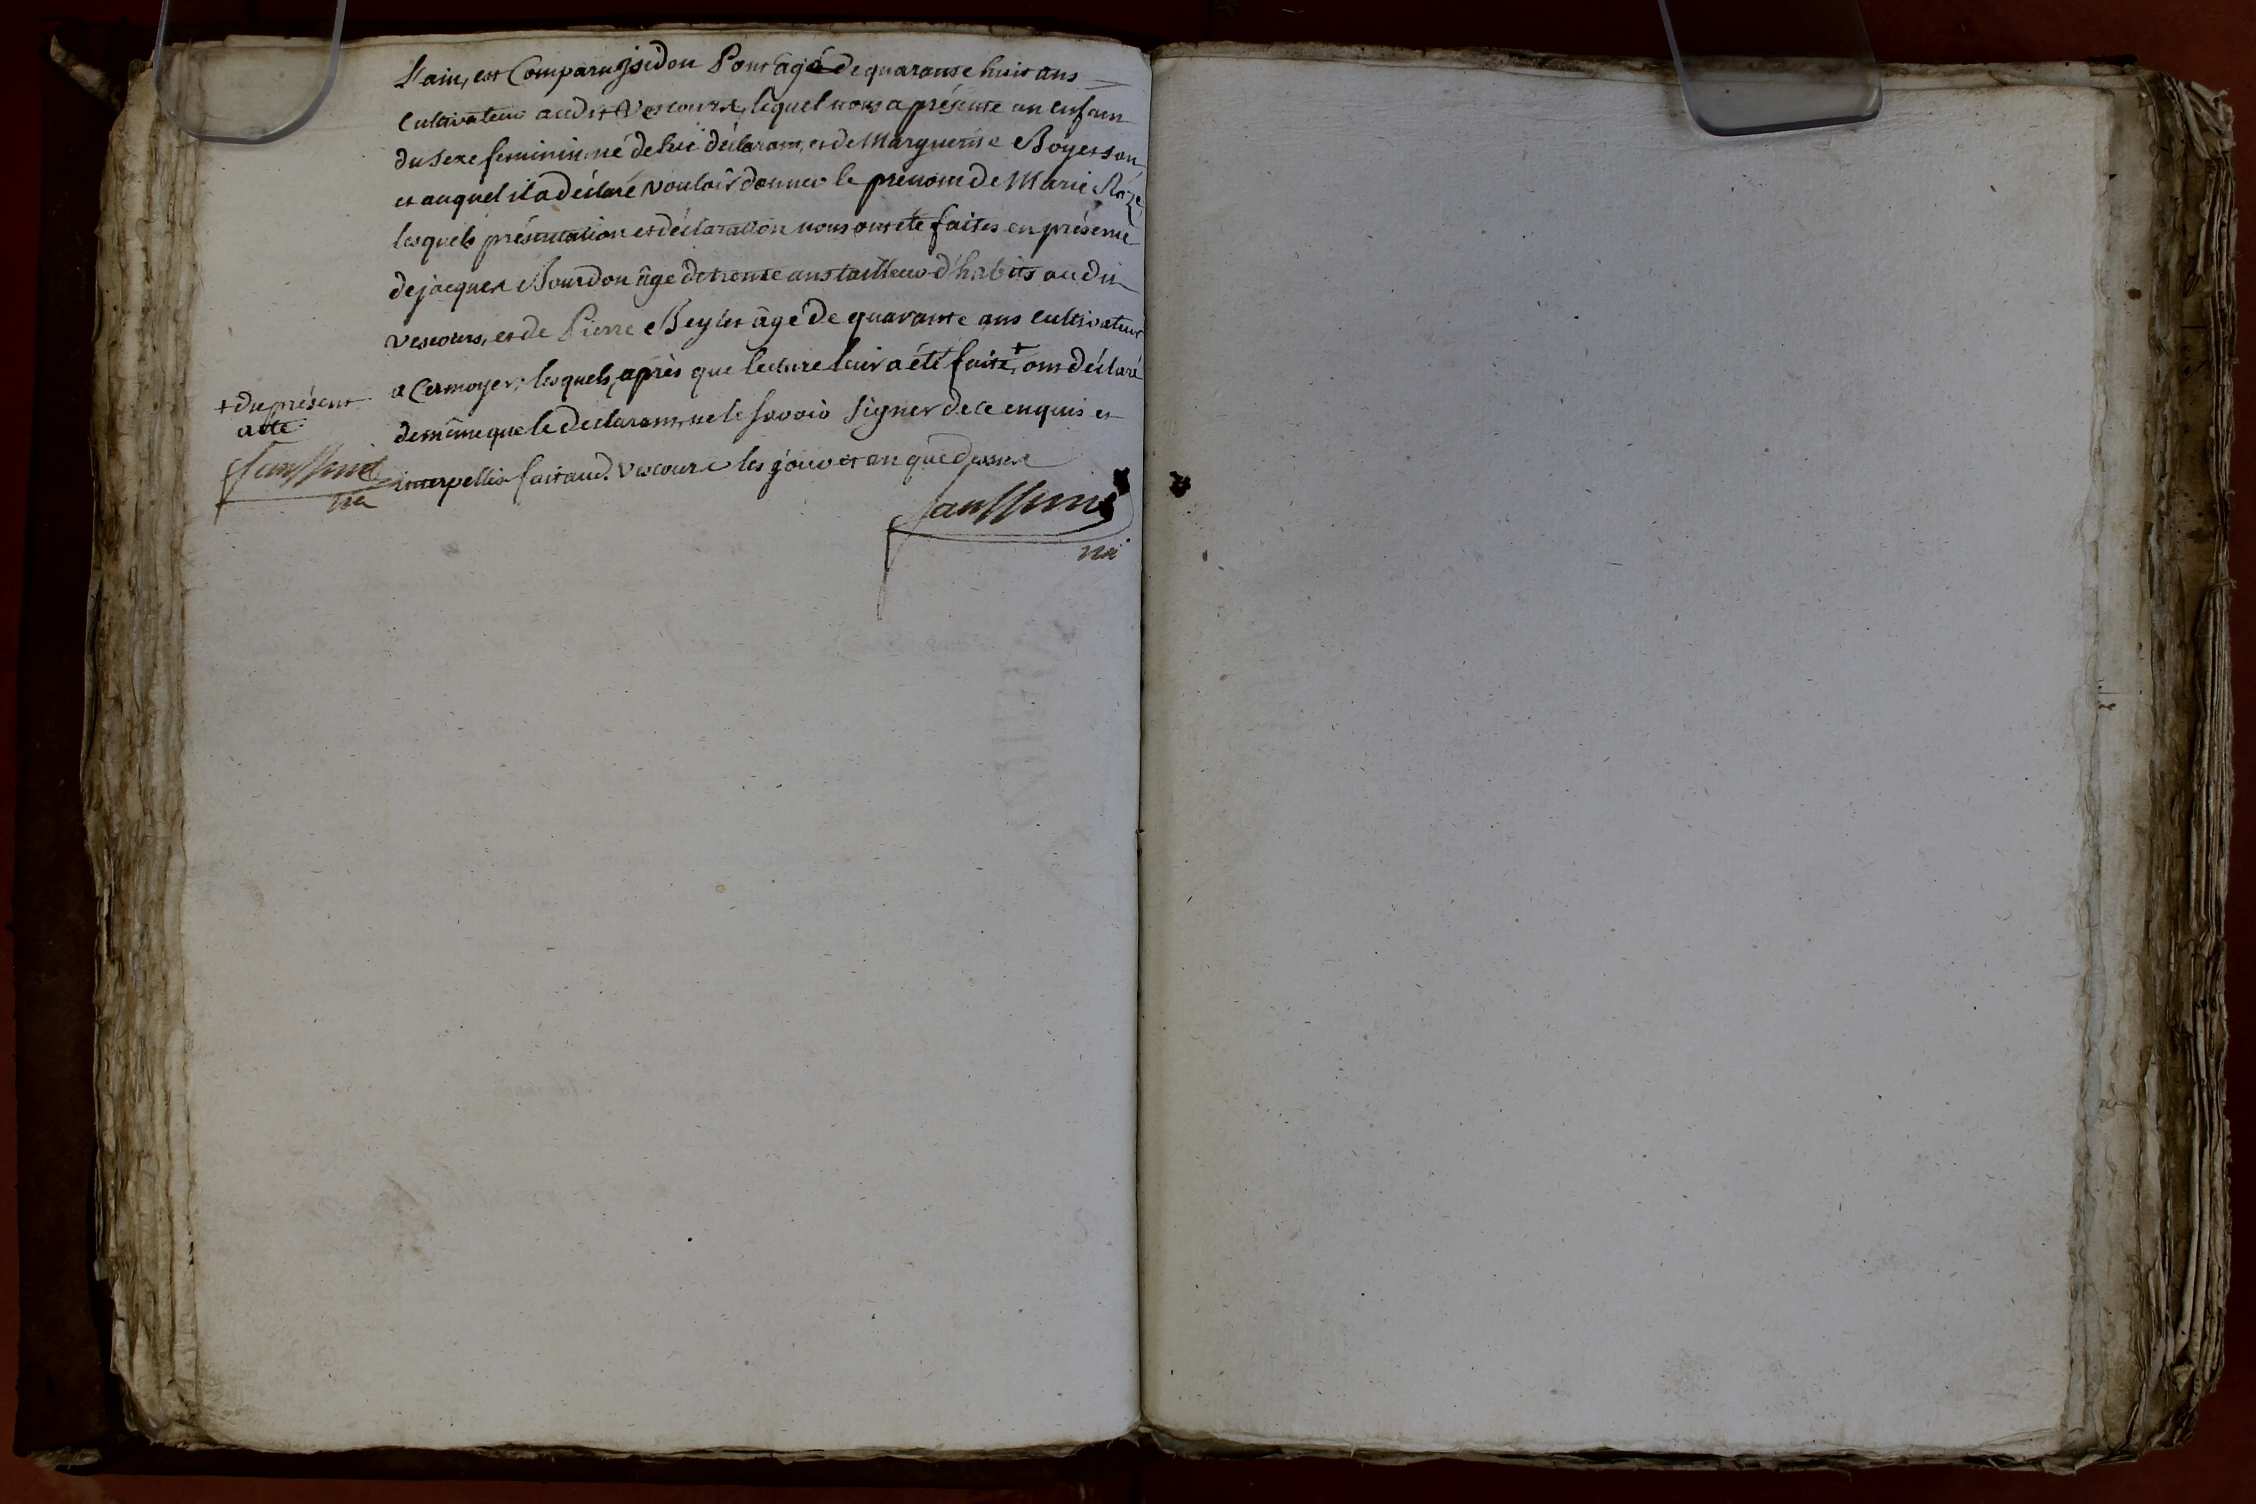 L'ain, est Comparu jsidou Pont âgé de quarante huit ans
Cultivateur audit Vescours, lequel nous a présenté un enfant
du Sexe feminin, né de lui déclarant, et de Marguerite Boyer son
et auquel il a déclaré vouloir donner le prenom de Marie Roze,
lesquels présentation et déclaration nous ont été faites en présence
de jacques Bourdon âgé de trente ans tailleur d'habits au dit
vescours, et de Pierre Beylet âgé de quarante ans cultivateur
a Cermoyer; lesquels, après que lecture leur a été faite + ont déclaré
+ du présent
acte.
de même que le déclarant, ne le savoir signer de ce enquis et
interpellés fait aud. Vescours les jour et an que dessus